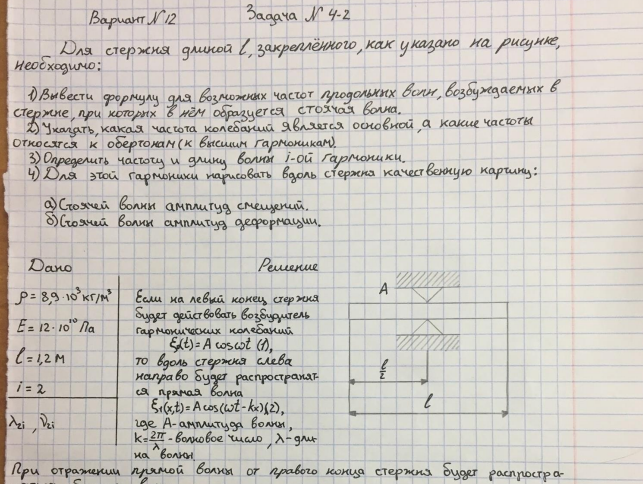 Вариант N12 Задача N 4-2
Для стержня длиной l, закреплённого, как указано на рисунке,
необходимо:
1) Вывести формулу для возможных частот продольных волн, возбуждаемых в
стержне, при которых в нём образуется стоячая волна.
2) Указать, какая частота колебаний является основной, а какие частоты
относятся к обертонам (к высшим гармоникам).
3) Определить частоту и длину волны i-ой гармоники.
4) Для этой гармоники нарисовать вдоль стержня качественную картину:
а) Стоячей волны амплитуд смещений.
б) Стоячей волны амплитуд деформации.
Дано
ρ = 8,9·10³ кг/м³
E = 12·10¹⁰ Па
l = 1,2 м
i = 2
λ₂ᵢ, ν₂ᵢ
Решение
Если на левый конец стержня
будет действовать возбудитель
гармонических колебаний
ξ(t) = A cosωt (1),
то вдоль стержня слева
направо будет распространят-
ся прямая волна
ξ₁(x,t) = A cos(ωt-kx)(2),
где A-амплитуда волны,
k=2π/λ-волновое число, λ-дли-
на волны
A
l/2
l
При отражении прямой волны от правого конца стержня будет распростра-